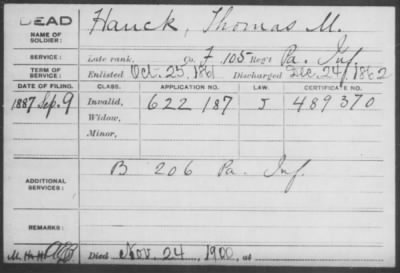 DEAD
NAME OF SOLDIER: Hauck, Thomas M.
SERVICE: Late rank, Co. F, 105 Reg't Pa. Inf.
TERM OF SERVICE: Enlisted Oct. 25, 1861 Discharged Dec. 24, 1862
DATE OF FILING. CLASS. APPLICATION NO. LAW. CERTIFICATE NO.
1887 Sep. 9 Invalid, 622 187 J 489370
Widow,
Minor,
ADDITIONAL SERVICES: B 206 Pa. Inf.
REMARKS:
Died Nov. 24, 1900, at